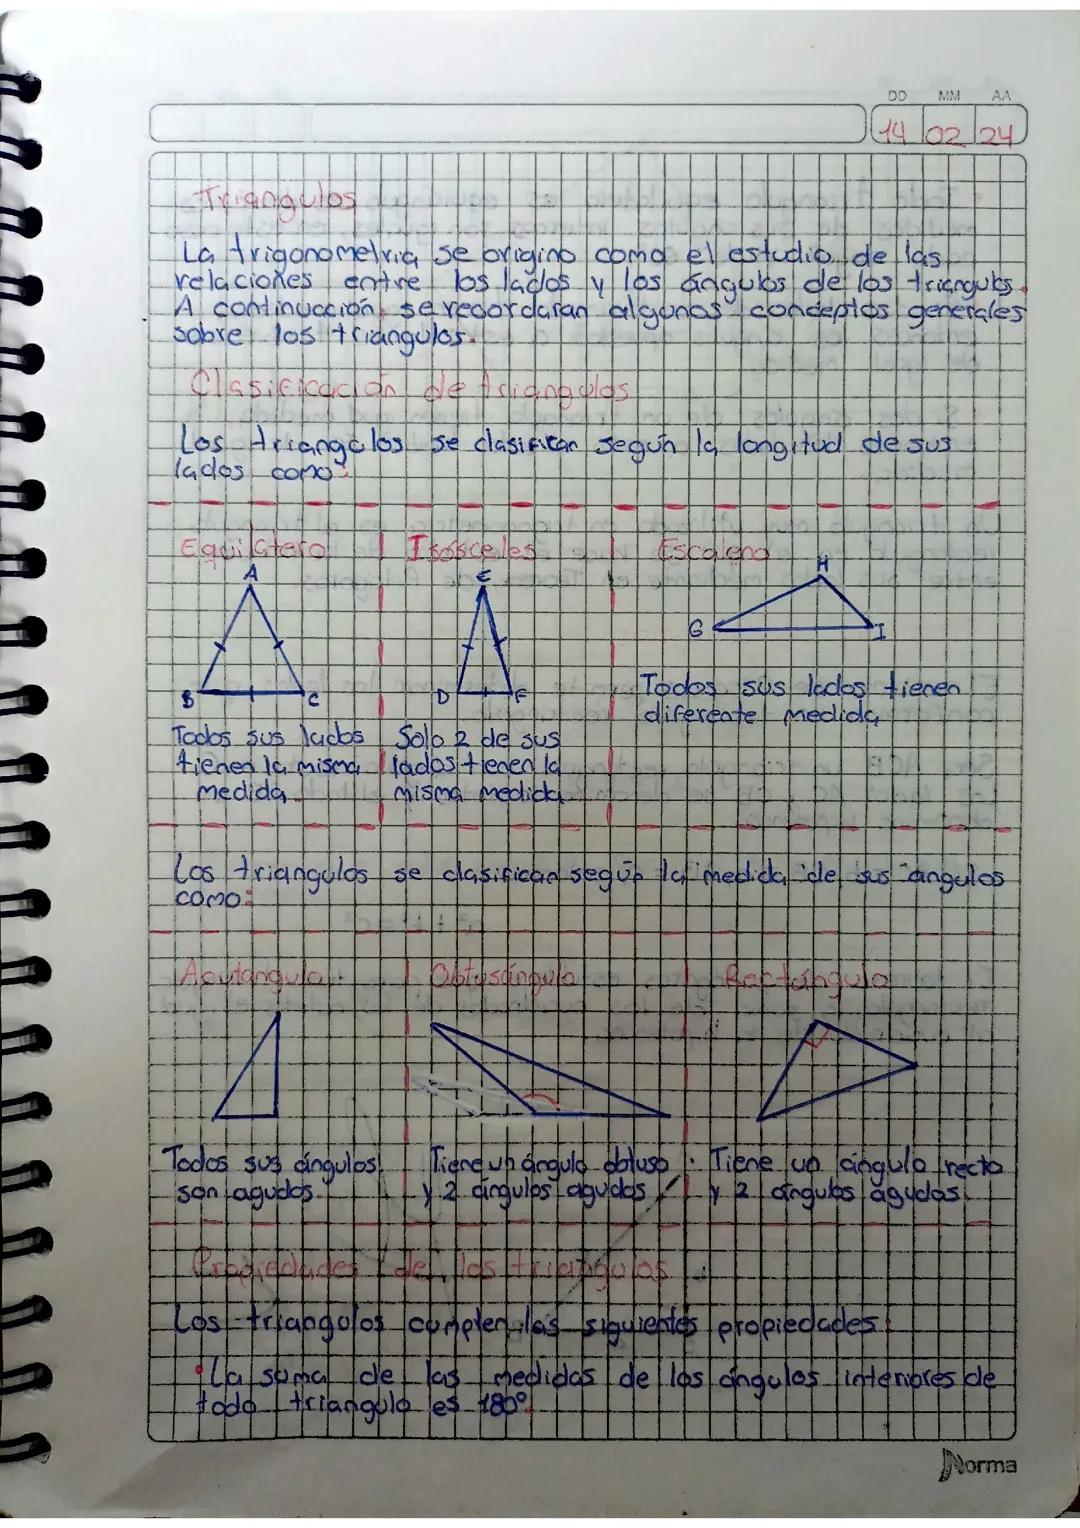 DD MM AA
14 02 24
Triangulos
La trigonometria se origino como el estudio de las
relaciones entre los lados y los ángulos de los triangulos.
A continuacción, se recordaran algunos conceptos generales
sobre los triangulos.
Clasificación de triangulos
Los triangulos se clasifican según la longitud de sus
lados como:
Equilatero Isósceles Escaleno
A E H
G I
B C D F
Todos sus lados tienen
diferente medida
Todos sus lados Solo 2 de sus
tienen la misma lados tienen la
medida. misma medida
Los triangulos se clasifican según la medida de sus angulos
como:
Acutangulo Obtusángulo Rectángulo
Todos sus ángulos Tiene un ángulo obtuso Tiene un ángulo recto
son agudos. y 2 ángulos agudos y 2 ángulos agudos.
Propiedades de los triangulos
Los triangulos cumplen las siguientes propiedades:
• La suma de las medidas de los ángulos interiores de
todo triangulo es 180°.
Norma